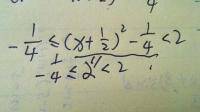 -1/4 ≤ (x+1/2)² - 1/4 < 2
-1/4 ≤ 2 < 2